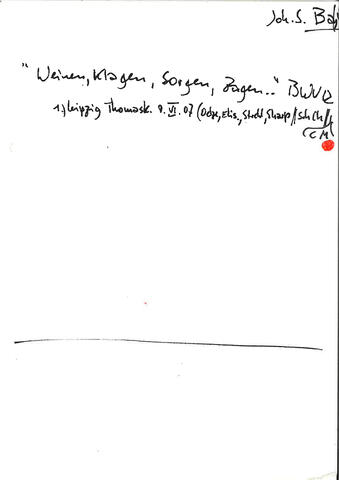 Joh. S. Ba
"Weinen, Klagen, Sorgen, Zagen.." BWV 12
1.) Leipzig Thomask. 9. VI. 07 (Odze, Elis, Strehl, Sharp //
CM